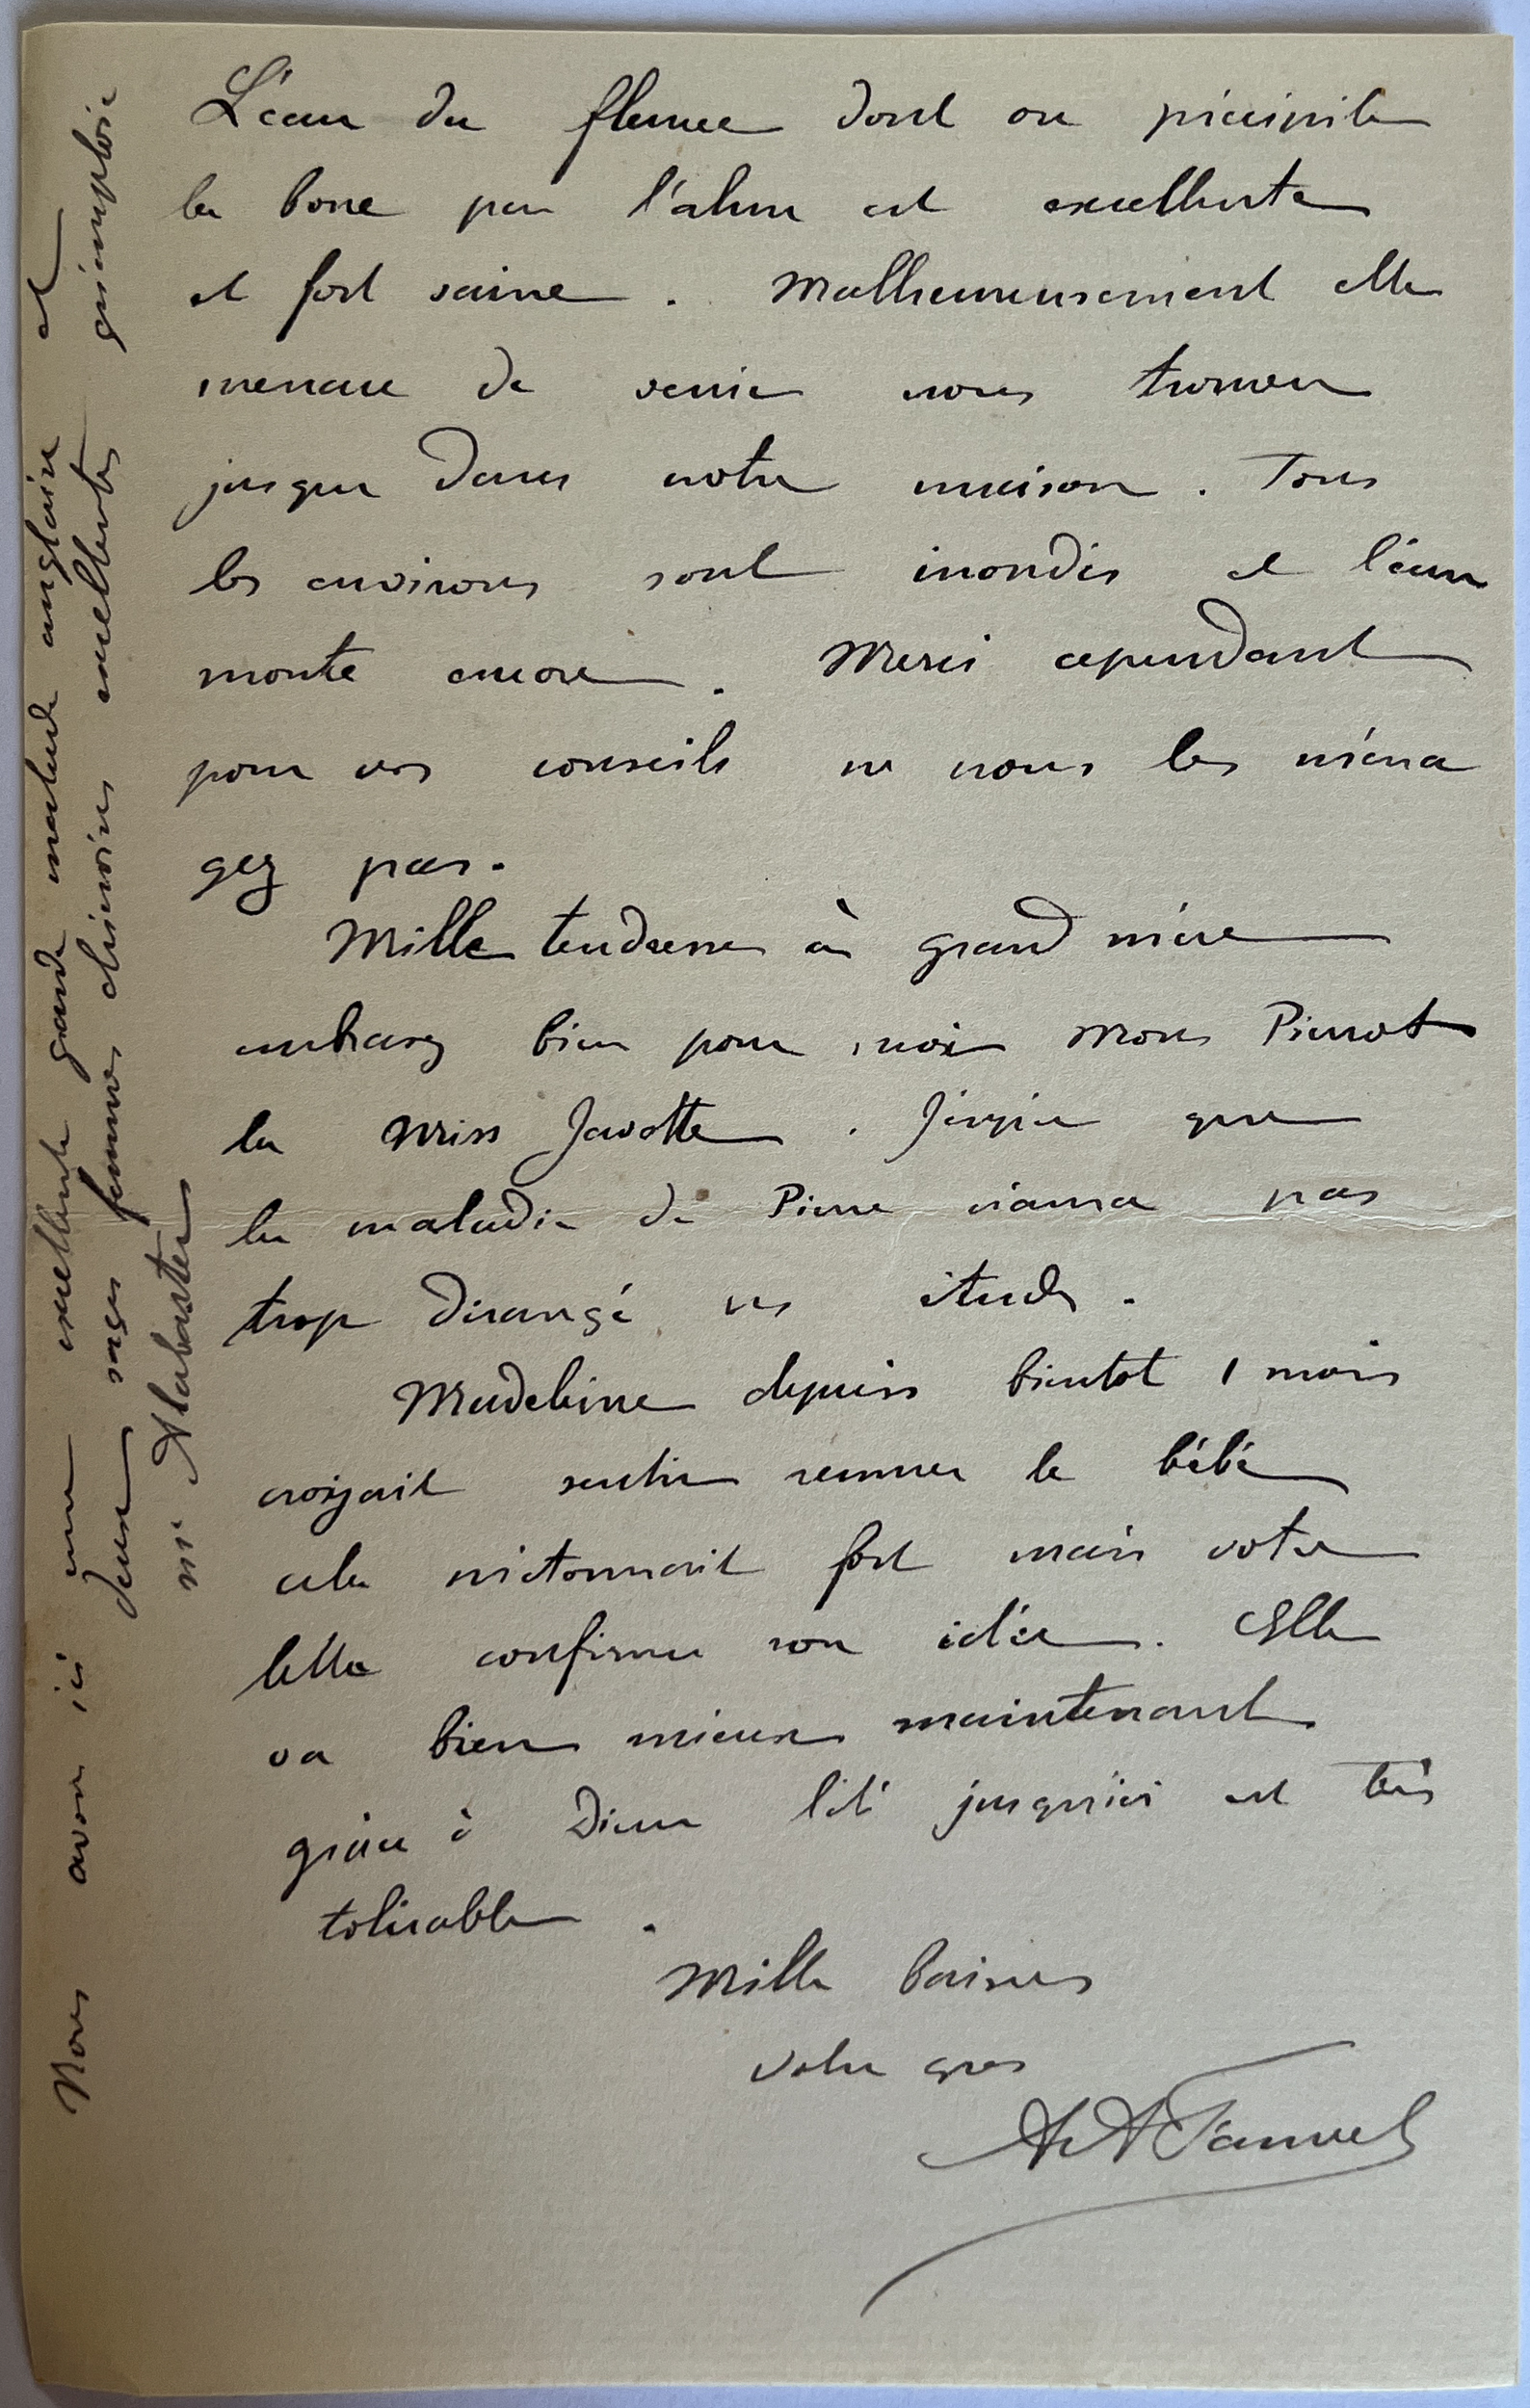 L'eau du fleuve dont on précipite
la boue par l'alun est excellente
et fort saine. Malheureusement elle
menace de venir nous trouver
jusque dans notre maison. Tous
les environs sont inondés et l'eau
monte encore. Merci cependant
pour vos conseils ne nous les ména
gez pas.
Mille tendresses à grand mère
embrassez bien pour moi Mons Pierrot
la Miss Javotte. J'espère que
la maladie de Pierre n'aura pas
trop dérangé ses études.
Madeleine depuis bientot 1 mois
croyait sentir remuer le bébé
cela m'étonnait fort mais votre
lettre confirme son idée. Elle
va bien mieux maintenant
grâce à Dieu l'été jusqu'ici est très
tolérable.
Mille baisers
Votre gros
Nous avons ici une excellente grande malade anglaise et
deux sages femmes chinoises excellentes qu'emploie
Mr Alabaster